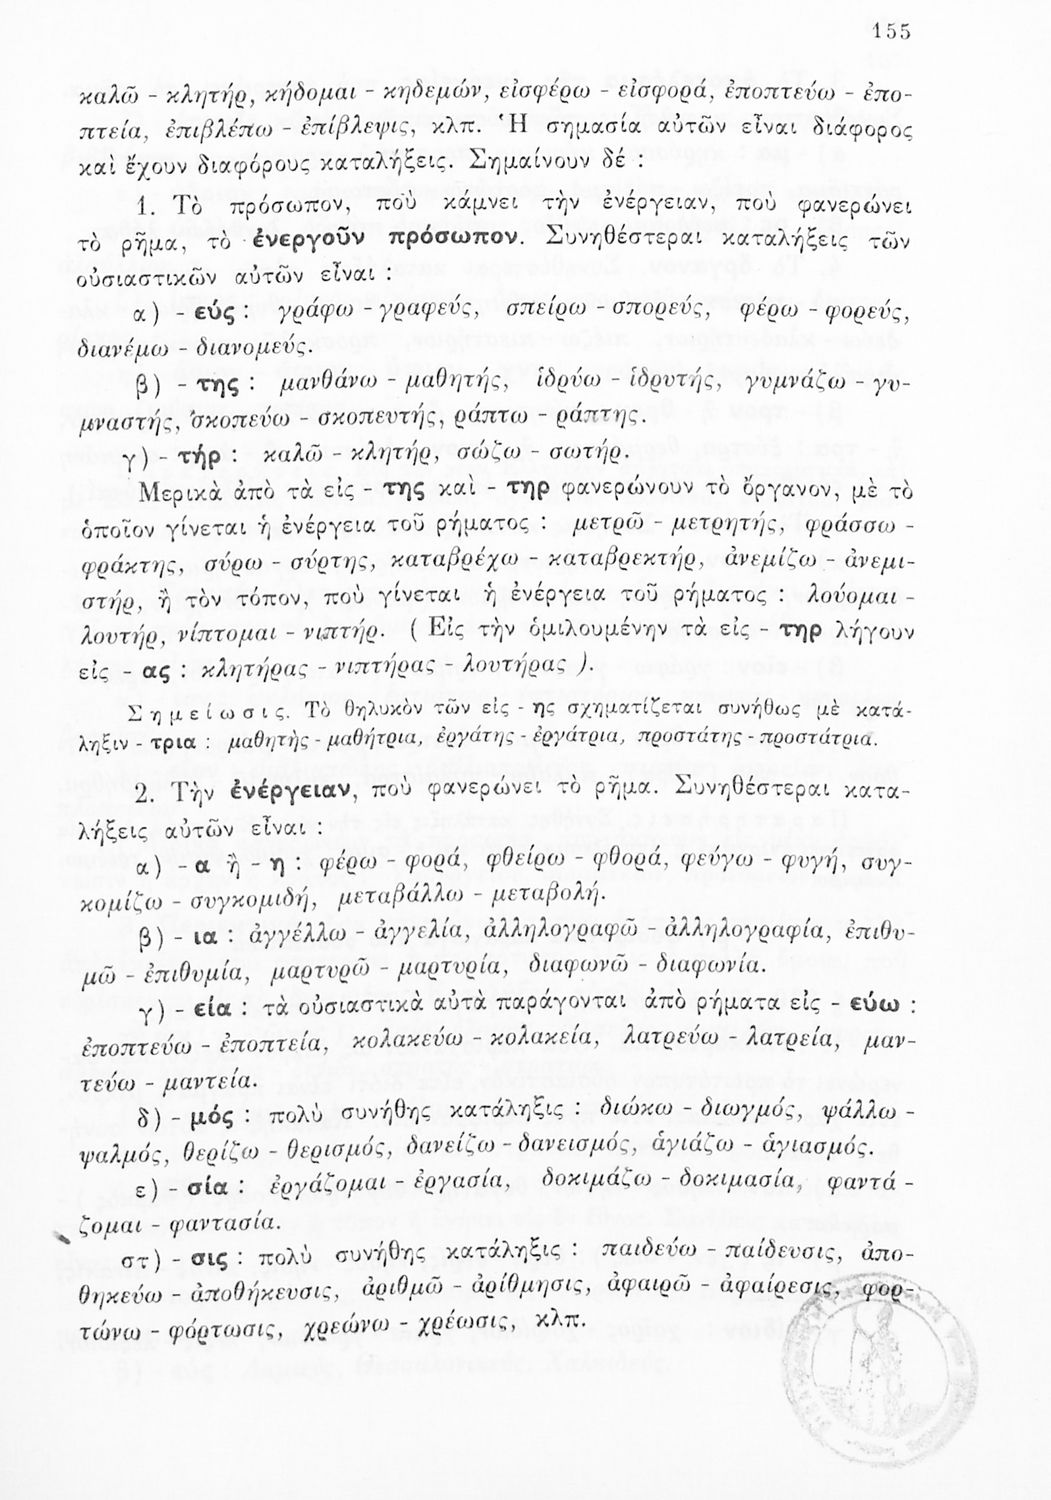 155
καλῶ - κλητήρ, κήδομαι - κηδεμών, εἰσφέρω - εἰσφορά, ἐποπτεύω - ἐπο-
πτεία, ἐπιβλέπω - ἐπίβλεψις, κλπ. Ἡ σημασία αὐτῶν εἶναι διάφορος
καὶ ἔχουν διαφόρους καταλήξεις. Σημαίνουν δέ :
1. Τὸ πρόσωπον, ποὺ κάμνει τὴν ἐνέργειαν, ποὺ φανερώνει
τὸ ρῆμα, τὸ ἐνεργοῦν πρόσωπον. Συνηθέστεραι καταλήξεις τῶν
οὐσιαστικῶν αὐτῶν εἶναι :
α) - εύς : γράφω - γραφεύς, σπείρω - σπορεύς, φέρω - φορεύς,
διανέμω - διανομεύς.
β) - της : μανθάνω - μαθητής, ἱδρύω - ἱδρυτής, γυμνάζω - γυ-
μναστής, σκοπεύω - σκοπευτής, ράπτω - ράπτης.
γ) - τήρ : καλῶ - κλητήρ, σώζω - σωτήρ.
Μερικὰ ἀπὸ τὰ εἰς - της καὶ - τηρ φανερώνουν τὸ ὄργανον, μὲ τὸ
ὁποῖον γίνεται ἡ ἐνέργεια τοῦ ρήματος : μετρῶ - μετρητής, φράσσω -
φράκτης, σύρω - σύρτης, καταβρέχω - καταβρεκτήρ, ἀνεμίζω - ἀνεμι-
στήρ, ἢ τὸν τόπον, ποὺ γίνεται ἡ ἐνέργεια τοῦ ρήματος : λούομαι -
λουτήρ, νίπτομαι - νιπτήρ. ( Εἰς τὴν ὁμιλουμένην τὰ εἰς - τηρ λήγουν
εἰς - ας : κλητήρας - νιπτήρας - λουτήρας ).
Σημείωσις. Τὸ θηλυκὸν τῶν εἰς - ης σχηματίζεται συνήθως μὲ κατά-
ληξιν - τρια : μαθητὴς - μαθήτρια, ἐργάτης - ἐργάτρια, προστάτης - προστάτρια.
2. Τὴν ἐνέργειαν, ποὺ φανερώνει τὸ ρῆμα. Συνηθέστεραι κατα-
λήξεις αὐτῶν εἶναι :
α) - α ἢ - η : φέρω - φορά, φθείρω - φθορά, φεύγω - φυγή, συγ-
κομίζω - συγκομιδή, μεταβάλλω - μεταβολή.
β) - ια : ἀγγέλλω - ἀγγελία, ἀλληλογραφῶ - ἀλληλογραφία, ἐπιθυ-
μῶ - ἐπιθυμία, μαρτυρῶ - μαρτυρία, διαφωνῶ - διαφωνία.
γ) - εία : τὰ οὐσιαστικὰ αὐτὰ παράγονται ἀπὸ ρήματα εἰς - εύω :
ἐποπτεύω - ἐποπτεία, κολακεύω - κολακεία, λατρεύω - λατρεία, μαν-
τεύω - μαντεία.
δ) - μός : πολὺ συνήθης κατάληξις : διώκω - διωγμός, ψάλλω -
ψαλμός, θερίζω - θερισμός, δανείζω - δανεισμός, ἁγιάζω - ἁγιασμός.
ε) - σία : ἐργάζομαι - ἐργασία, δοκιμάζω - δοκιμασία, φαντά -
ζομαι - φαντασία.
στ) - σις : πολὺ συνήθης κατάληξις : παιδεύω - παίδευσις, ἀπο-
θηκεύω - ἀποθήκευσις, ἀριθμῶ - ἀρίθμησις, ἀφαιρῶ - ἀφαίρεσις, φορ-
τώνω - φόρτωσις, χρεώνω - χρέωσις, κλπ.